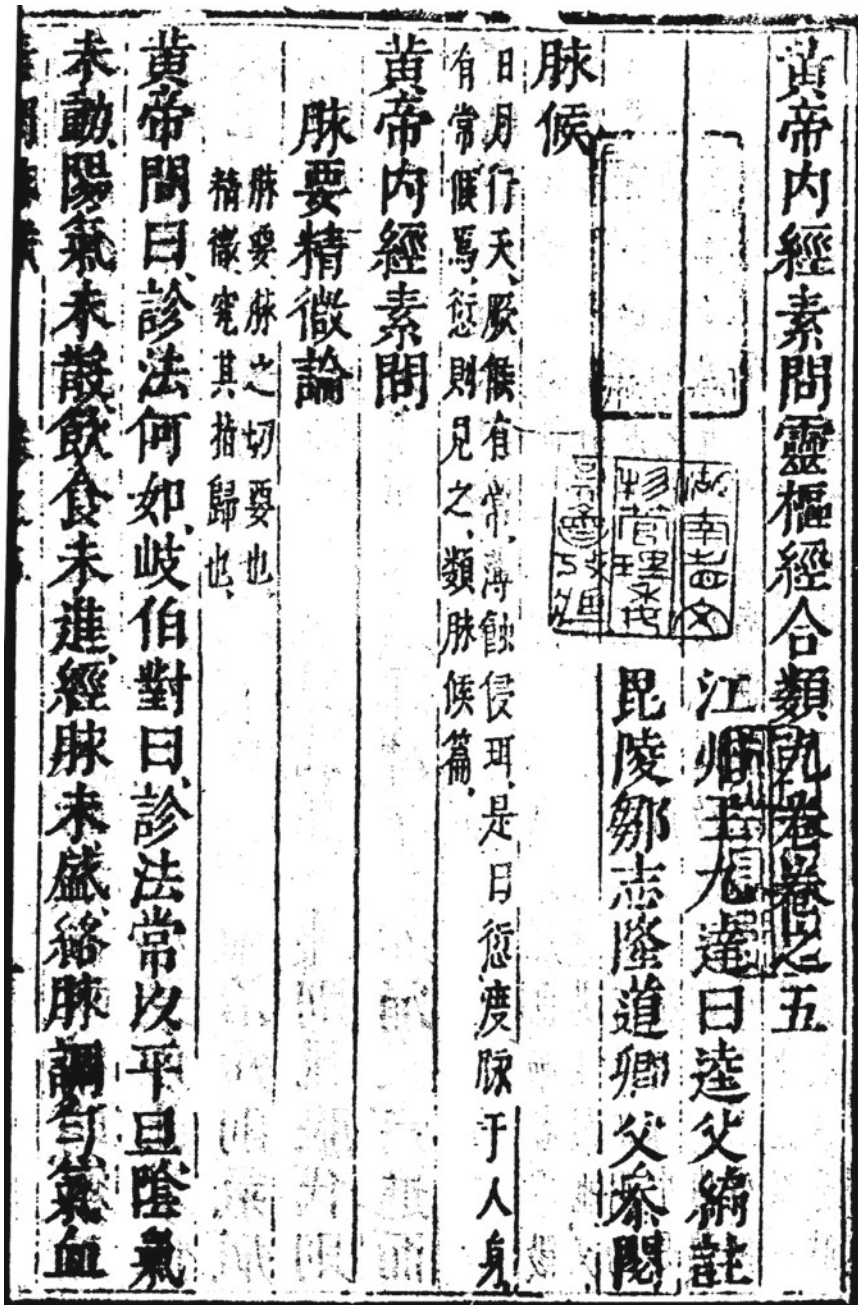 黃帝內經素問靈樞經合類九卷卷之五
江州王九達曰逵父編註
毘陵鄒志隆道卿父叅閱
湖南省文
物管理委
脉候
日月行天、厥候有常、薄蝕侵珥、是曰愆度脉于人身
有常候焉、愆則見之、類脉候篇、
黃帝內經素問
脉要精微論
脉要、脉之切要也、
精微、究其指歸也、
黃帝問曰、診法何如、岐伯對曰、診法常以平旦、陰氣
未動、陽氣未散、飲食未進、經脉未盛、絡脉調勻、氣血